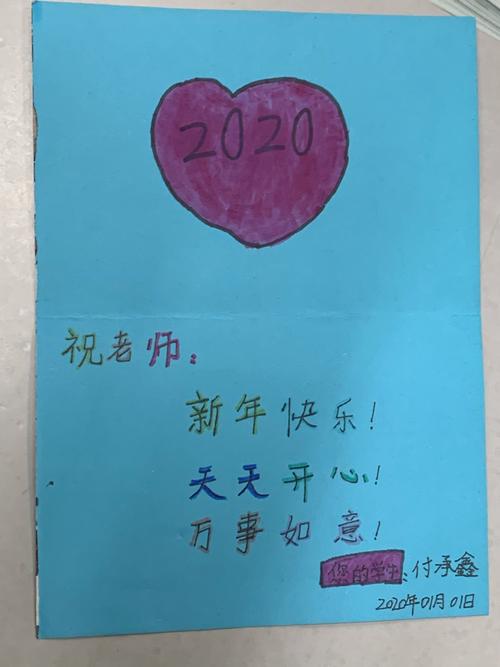 2020
祝老师：
新年快乐！
天天开心！
万事如意！
您的学生：付承鑫
2020年01月01日